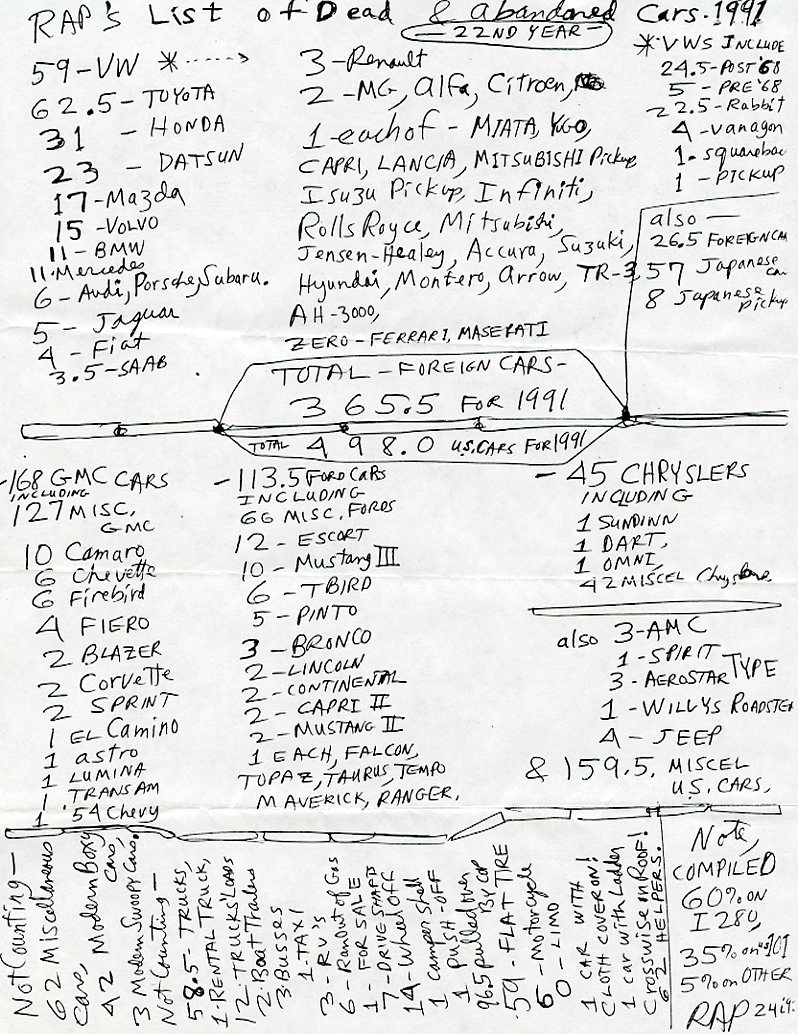 RAP'S List of Dead & abandoned Cars. 1991
— 22ND YEAR —
59-VW *----->
62.5-TOYOTA
31 - HONDA
23 - DATSUN
17-Mazda
15-VOLVO
11-BMW
11-Mercedes
6-Audi, Porsche, Subaru.
5- Jaguar
4-Fiat
3.5-SAAB
3-Renault
2-MG, Alfa, Citroen,
1-each of - MIATA, YUGO,
CAPRI, LANCIA, MITSUBISHI Pickup
Isuzu Pickup, Infiniti,
Rolls Royce, Mitsubishi,
Jensen-Healey, Accura, Suzuki,
Hyundai, Montero, Arrow, TR-3,
AH-3000,
ZERO-FERRARI, MASERATI
*VWS INCLUDE
24.5-POST '68
5 - PRE '68
22.5-Rabbit
4-vanagon
1-squareback
1-PICKUP
also —
26.5 FOREIGN CAR
57 Japanese car
8 Japanese pickup
TOTAL - FOREIGN CARS -
365.5 FOR 1991
TOTAL 498.0 U.S. CARS FOR 1991
-168 GMC CARS
INCLUDING
127 MISC.
GMC
10 Camaro
6 Chevette
6 Firebird
4 FIERO
2 BLAZER
2 Corvette
2 SPRINT
1 EL Camino
1 astro
1 LUMINA
1 TRANSAM
1 '54 Chevy
-113.5 FORD CARS
INCLUDING
66 MISC. FORDS
12 - ESCORT
10 - Mustang III
6 - TBIRD
5 - PINTO
3 - BRONCO
2 - LINCOLN
2 - CONTINENTAL
2 - CAPRI II
2 - MUSTANG II
1 EACH, FALCON,
TOPAZ, TAURUS, TEMPO
MAVERICK, RANGER.
- 45 CHRYSLERS
INCLUDING
1 SUNDINN
1 DART,
1 OMNI,
42 MISCEL Chryslers.
also 3-AMC
1-SPIRIT
3-AEROSTAR TYPE
1-WILLYS ROADSTER
4-JEEP
& 159.5. MISCEL
U.S. CARS.
Not Counting —
62 Miscellaneous
Cars,
42 Modern Boxy
Cars,
3 Modern Swoopy Cars.
Not Counting —
58.5 - TRUCKS,
1-RENTAL TRUCK,
12-TRUCKS' Loads
2-Boat Trailers
3-Busses
1-TAXI
3-RV'S
6-Ran out of Gas
1-FOR SALE
7-DRIVE SHAFTS
14-Wheel OFF
1 camper shell
1 PUSH-OFF
965 pulled over
By COP
59-FLAT TIRE
6-Motorcycle
0-LIMO
1 CAR WITH
CLOTH COVER ON!
1 car with Ladder
Crosswise on ROOF!
62 HELPERS.
Note,
COMPILED
60% ON
I 280,
35% on 101
5% on OTHER
RAP